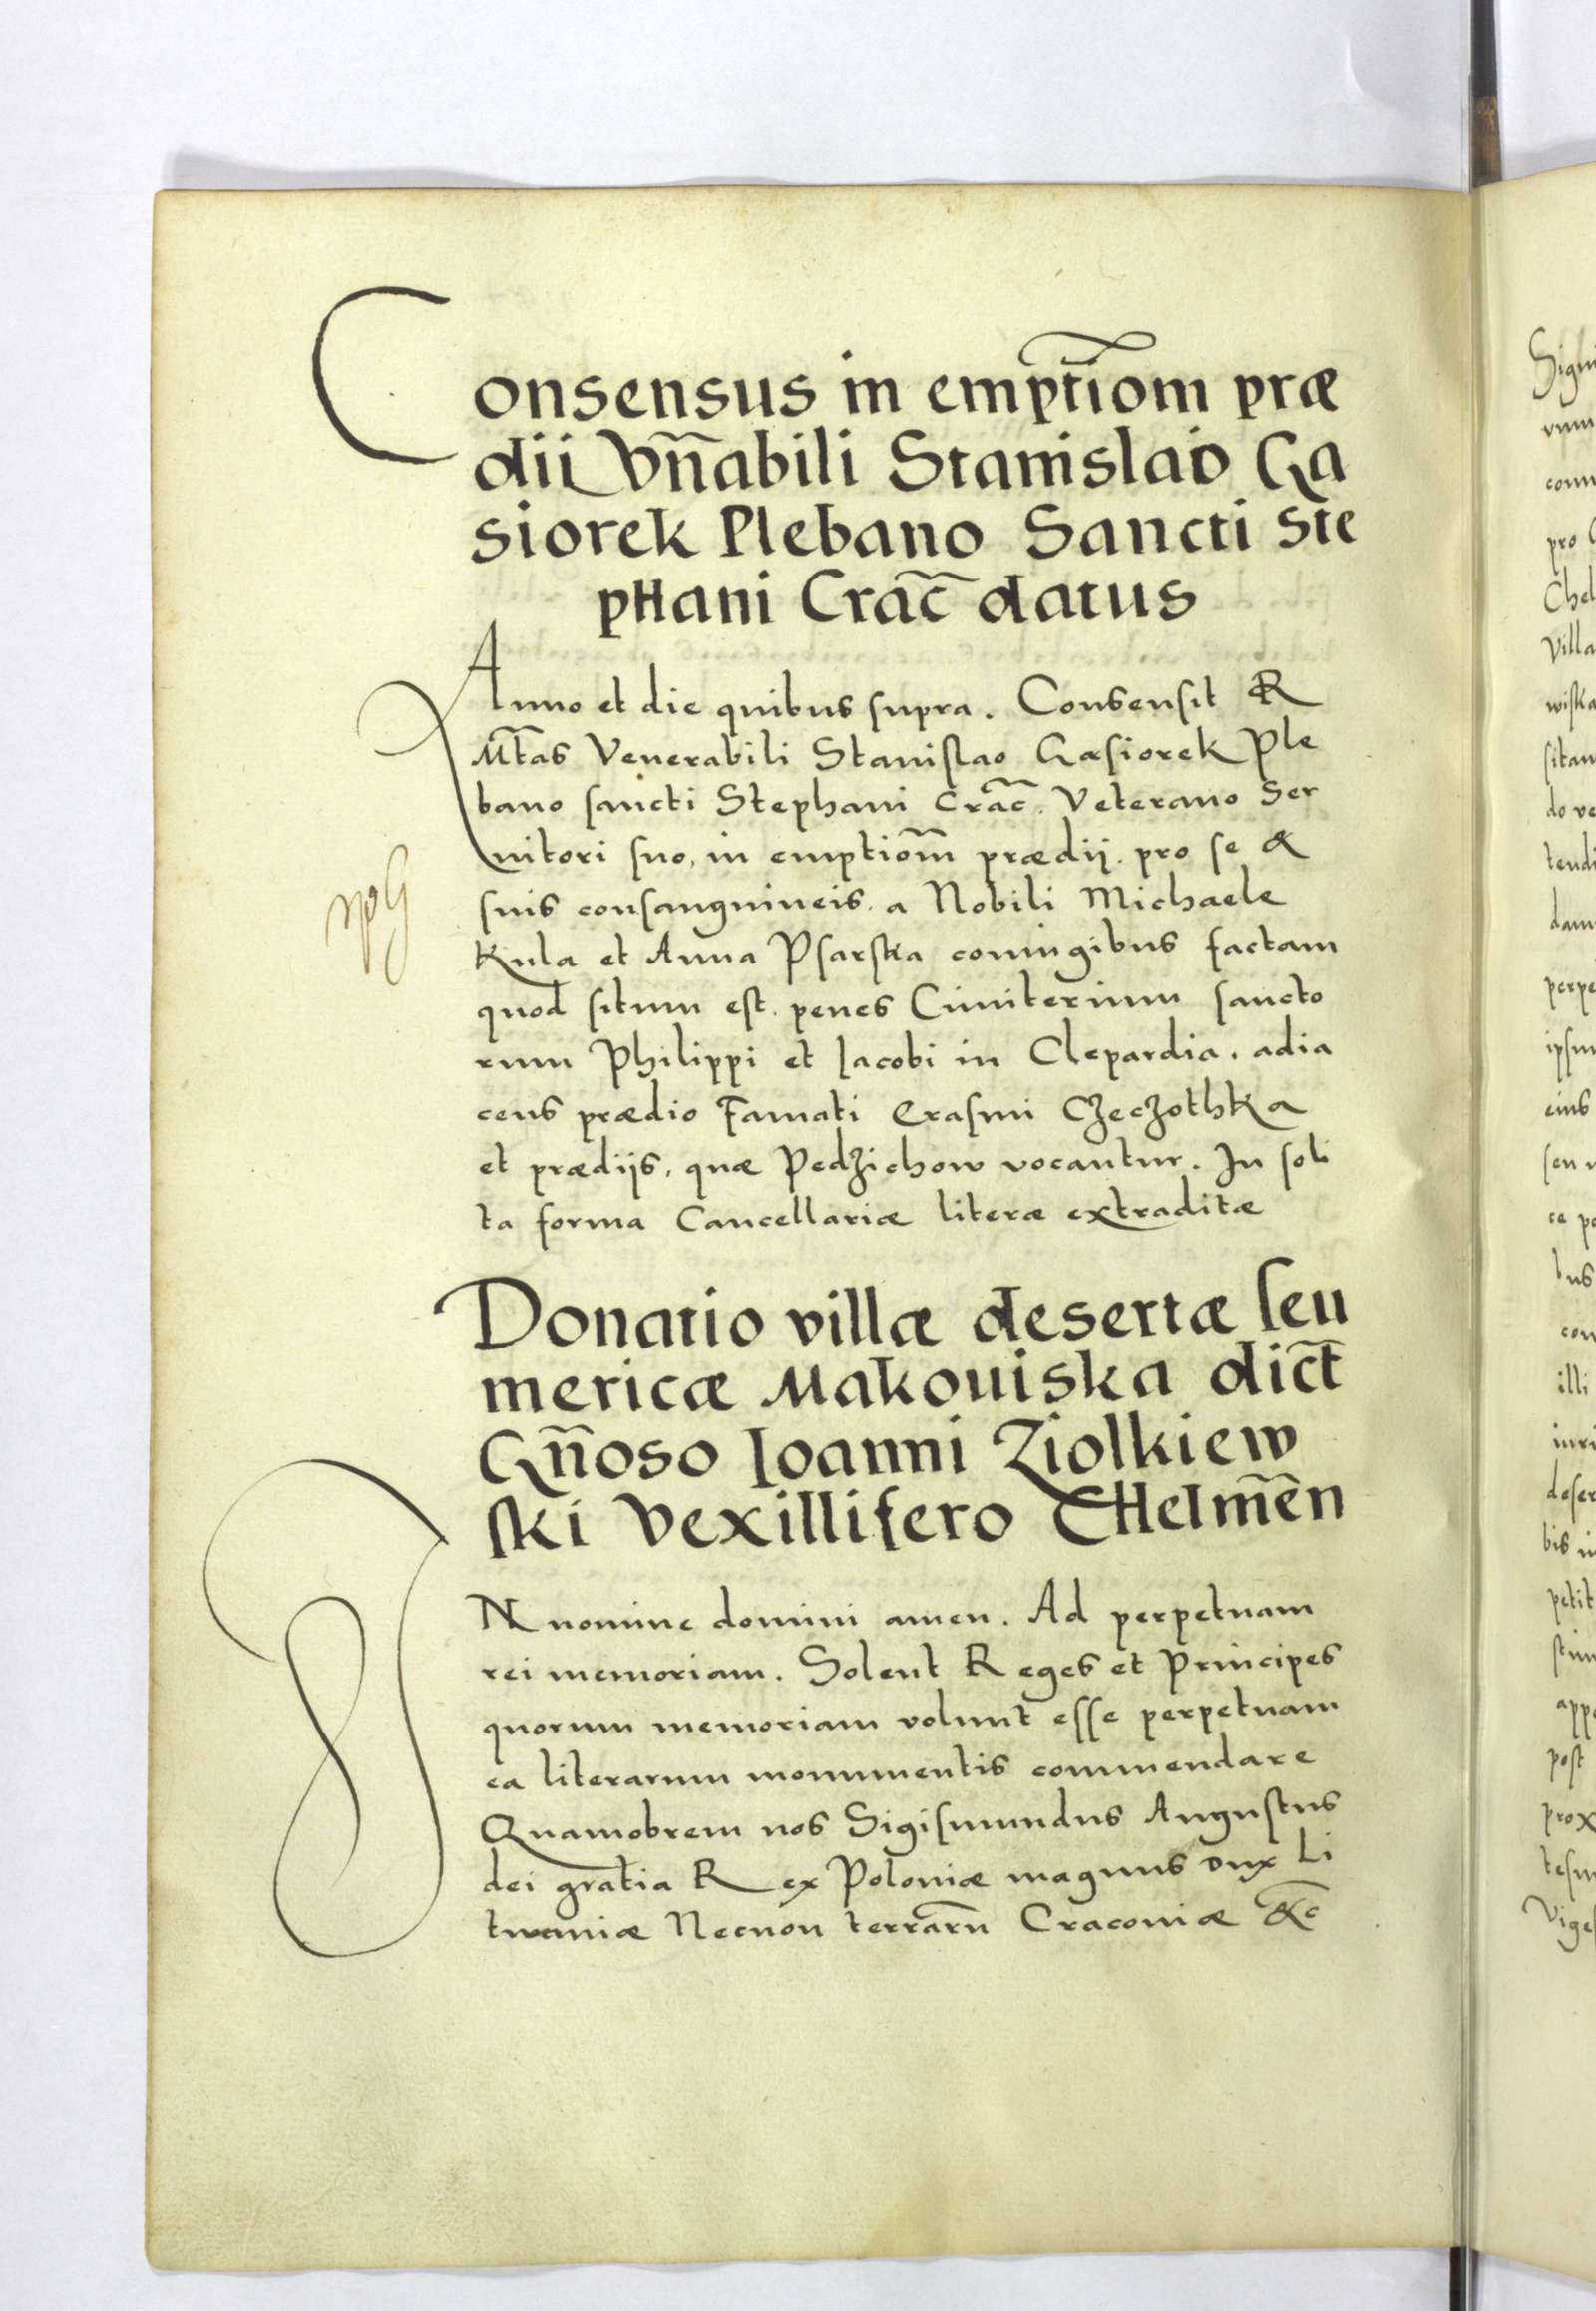 Consensus in emptiōm præ
dii Vñabili Stanislao Ga
siorek Plebano Sancti Ste
phani Crac̃ datus
Anno et die quibus supra. Consensit R
Mt̃as Venerabili Stanislao Gasiorek Ple
bano sancti Stephani Crac̃. Veterano Ser
uitori suo, in emptiōm prædij. pro se &
suis consanguineis. a Nobili Michaele
Kula et Anna Psarska coniugibus factam
quod situm est. penes Cimiterium sancto
rum Philippi et Iacobi in Clepardia. adia
cens prædio Famati Erasmi Czeczothka
et prædijs, quæ Pedzichow vocantur. In soli
ta forma Cancellariæ literæ extraditæ
Donatio villæ desertæ seu
mericæ Makouiska dict̃
Gñoso Ioanni Ziolkiew
ski Vexillifero Chelmēn
IN nomine domini amen. Ad perpetuam
rei memoriam. Solent Reges et Principes
quorum memoriam volunt esse perpetuam
ea literarum monumentis commendare
Quamobrem nos Sigismundus Augustus
dei gratia Rex Poloniæ magnus Dux Li
twaniæ Necnon terrarũ Cracoviæ &c̃